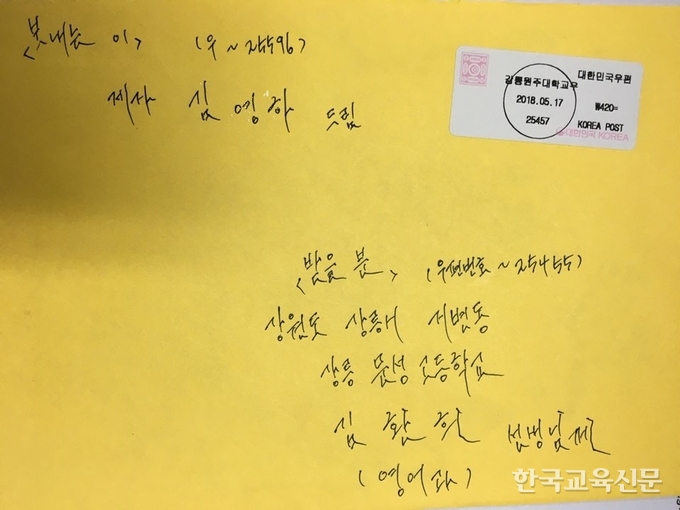 <보내는 이> (우~25596)
제자 심영하 드림
강릉원주대학교우
대한민국우편
2018.05.17
₩420=
25457
KOREA POST
대한민국 KOREA
<받을 분> (우편번호~25455)
강원도 강릉시 저변동
강릉 문성 고등학교
심 환 선생님께
(영어과)
한국교육신문